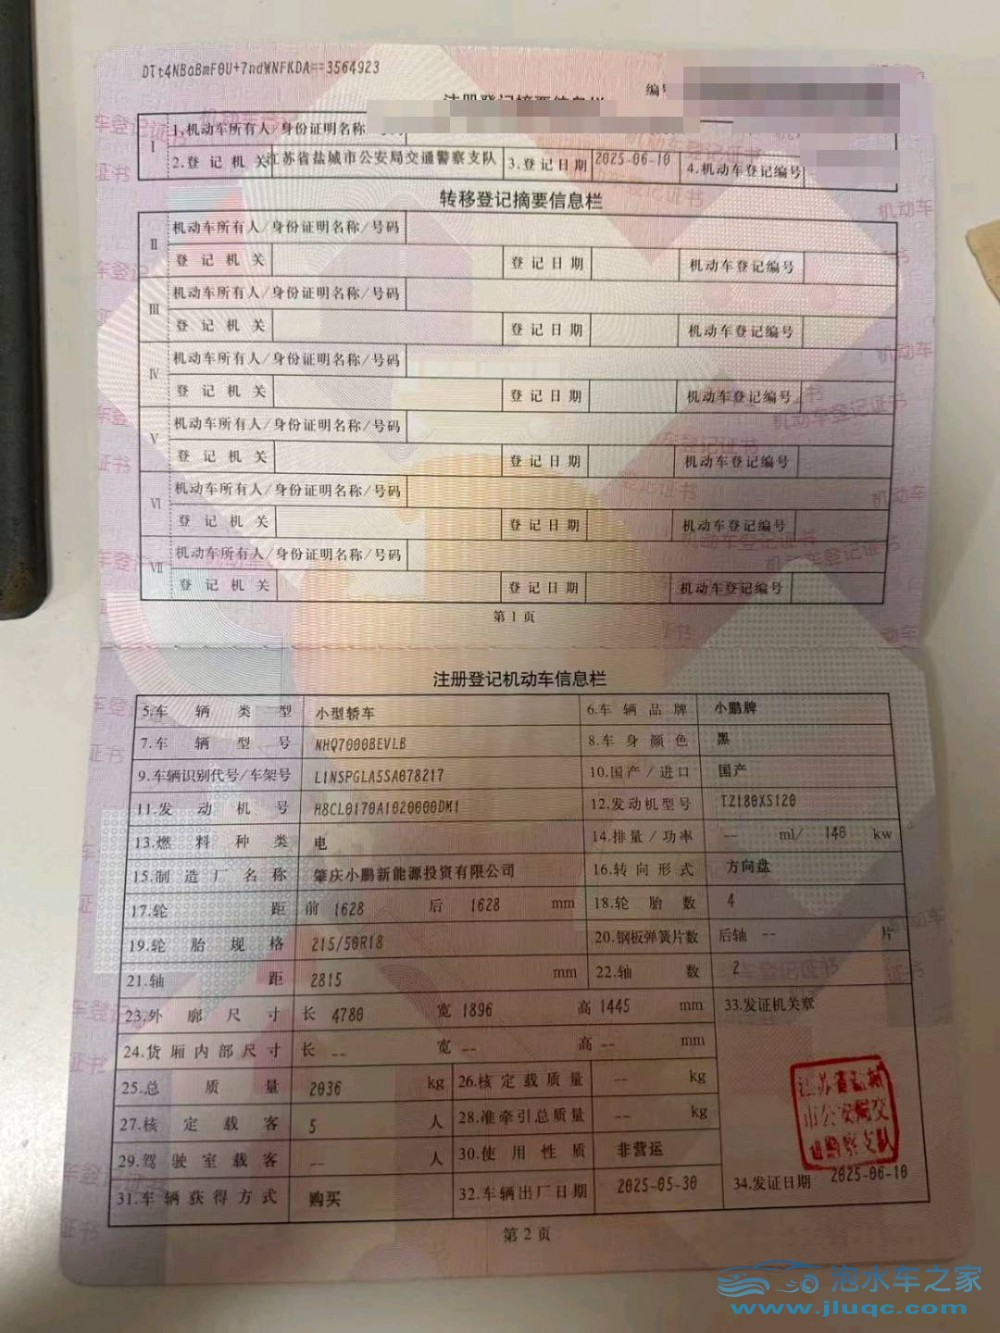 DTt4NBaBmF0U+7ndWNFKDA==3564923
编号
注册登记摘要信息栏
I 1.机动车所有人/身份证明名称/号码
2.登记机关 江苏省盐城市公安局交通警察支队 3.登记日期 2025-06-10 4.机动车登记编号
转移登记摘要信息栏
II 机动车所有人/身份证明名称/号码
登记机关 登记日期 机动车登记编号
III 机动车所有人/身份证明名称/号码
登记机关 登记日期 机动车登记编号
IV 机动车所有人/身份证明名称/号码
登记机关 登记日期 机动车登记编号
V 机动车所有人/身份证明名称/号码
登记机关 登记日期 机动车登记编号
VI 机动车所有人/身份证明名称/号码
登记机关 登记日期 机动车登记编号
VII 机动车所有人/身份证明名称/号码
登记机关 登记日期 机动车登记编号
第1页
注册登记机动车信息栏
5.车辆类型 小型轿车 6.车辆品牌 小鹏牌
7.车辆型号 NHQ7000BEVLB 8.车身颜色 黑
9.车辆识别代号/车架号 L1NSPGLA5SA078217 10.国产/进口 国产
11.发动机号 H8CL0170A1020000DM1 12.发动机型号 TZ180XS120
13.燃料种类 电 14.排量/功率 -- ml/ 140 kw
15.制造厂名称 肇庆小鹏新能源投资有限公司 16.转向形式 方向盘
17.轮距 前 1628 后 1628 mm 18.轮胎数 4
19.轮胎规格 215/50R18 20.钢板弹簧片数 后轴 -- 片
21.轴距 2815 mm 22.轴数 2
23.外廓尺寸 长 4780 宽 1896 高 1445 mm 33.发证机关章
24.货厢内部尺寸 长 -- 宽 -- 高 -- mm
25.总质量 2036 kg 26.核定载质量 -- kg
27.核定载客 5 人 28.准牵引总质量 -- kg
江苏省盐城
市公安局交
通警察支队
29.驾驶室载客 -- 人 30.使用性质 非营运
31.车辆获得方式 购买 32.车辆出厂日期 2025-05-30 34.发证日期 2025-06-10
第2页
泡水车之家
www.jluqc.com